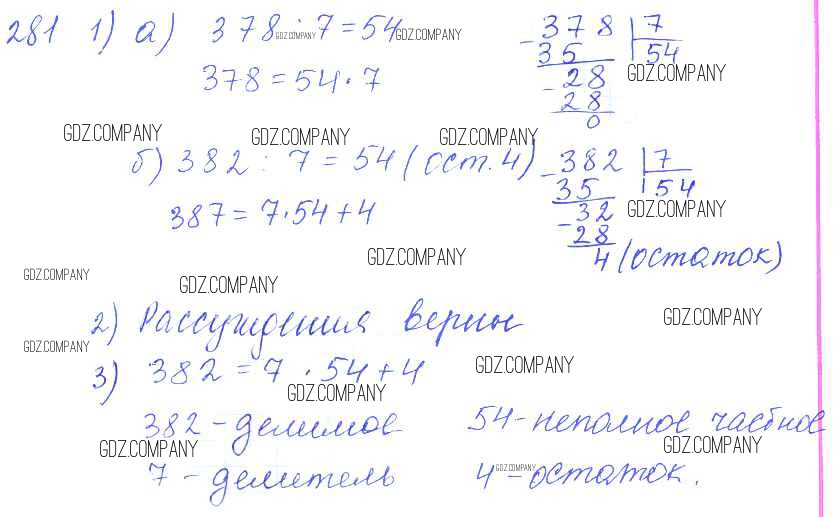 281 1) а) 378 : 7 = 54
378 = 54 · 7
378 | 7
- 35 | 54
- 28
28
0
GDZ.COMPANY GDZ.COMPANY
GDZ.COMPANY
GDZ.COMPANY GDZ.COMPANY GDZ.COMPANY
б) 382 : 7 = 54 (ост. 4)
387 = 7·54 + 4
382 | 7
- 35 | 54
- 32
28
4 (остаток)
GDZ.COMPANY
GDZ.COMPANY
GDZ.COMPANY
GDZ.COMPANY
2) Рассуждения верны
GDZ.COMPANY
GDZ.COMPANY
3) 382 = 7 · 54 + 4
GDZ.COMPANY
GDZ.COMPANY
382 - делимое 54 - неполное частное
GDZ.COMPANY GDZ.COMPANY
7 - делитель 4 - остаток.
GDZ.COMPANY